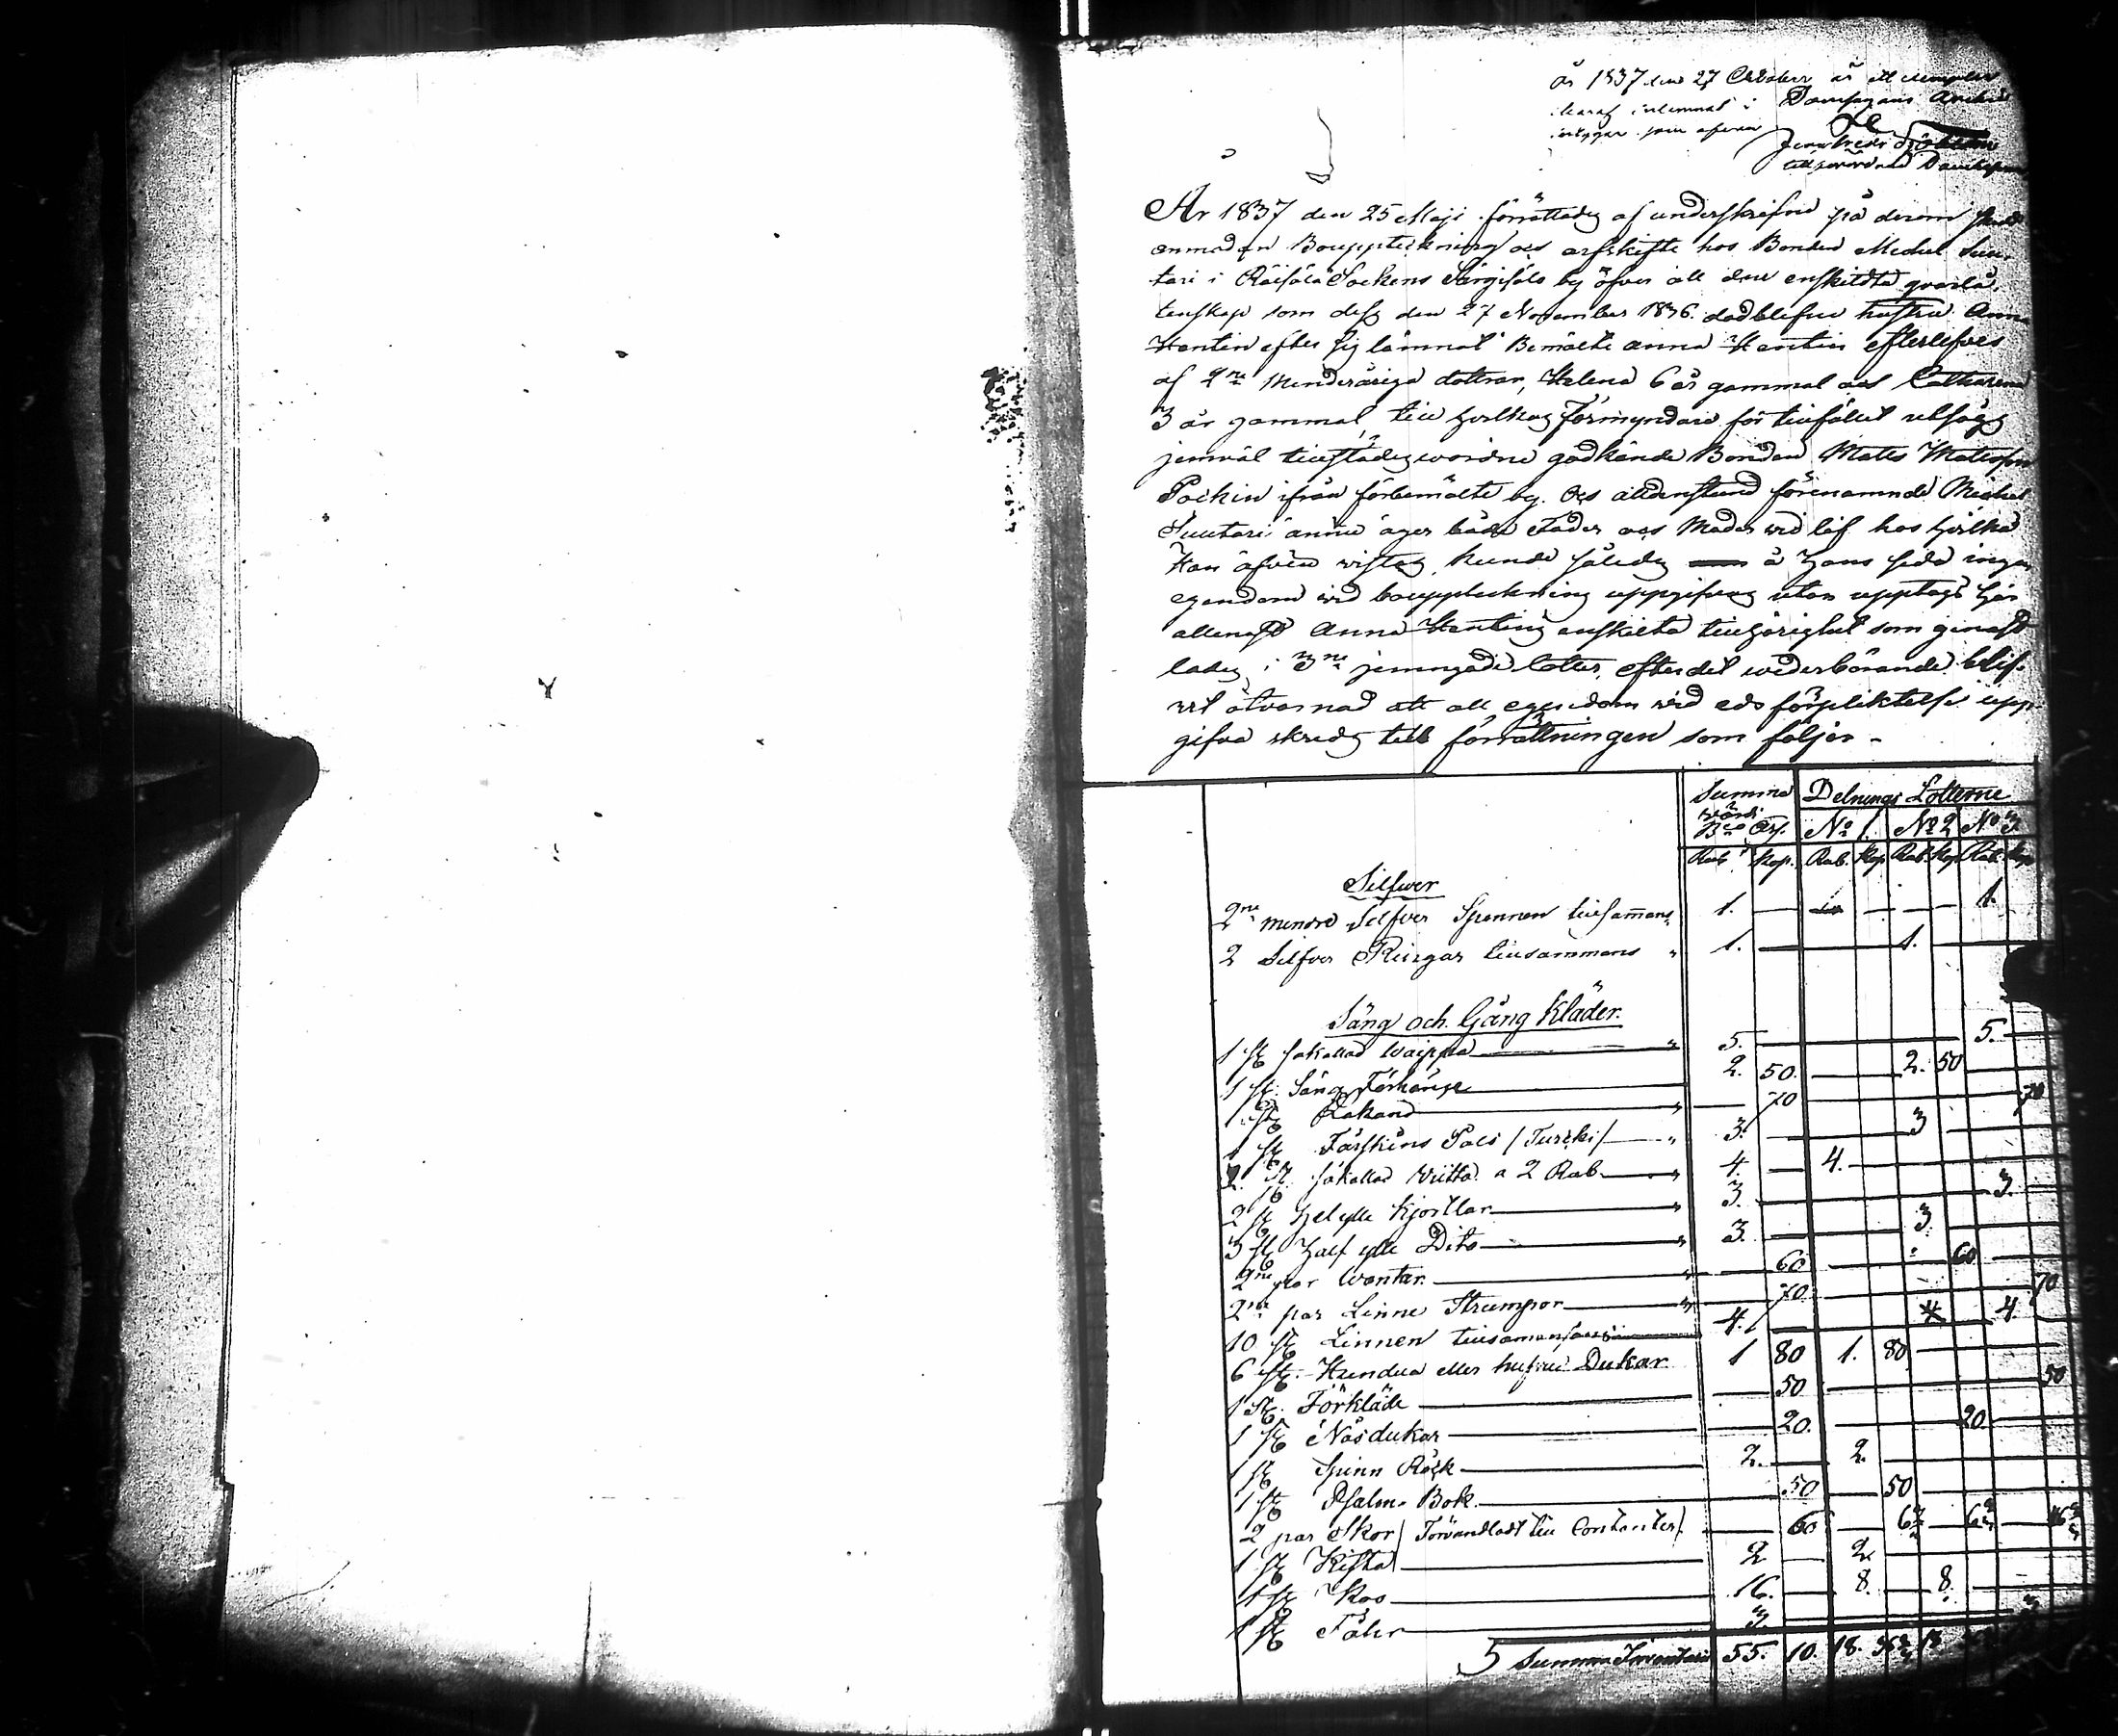 år 1837 den 27 October är ett exemplar
häraf inlemnat i Domsagans Archiv
intygar som ofvan
tillförordnad Domhafvande
År 1837 den 25 Maji förrättades af underskrifne på derom skedd
anmodan Bouppteckning och arfskifte hos Bonden Michel Suu-
tari i Räisälä Sockens Särgisalo by öfver all den enskildta qvarlå-
tenskap som dess den 27 November 1836 död blefne hustru Anna
Hantin efter sig lämnat Bemälte Anna Hantin efterlefves
af 2ne Minderåriga döttrar, Helena 6 år gammal och Catharina
3 år gammal, till hvilkas Förmyndare för tillfället utsågs
jemväl tillstädes vordne godkände Bonden Mats Matsson
Pockin ifrån förbemälte by. Och alldenstund förenämnde Michel
Suutari ännu äger både Fader och Moder vid lif hos hvilka
Han äfven vistas, kunde således å hans sida ingen
egendom vid bouppteckning uppgifvas utan upptogs här
allenast Anna Hantins enskilta tillhörighet som genast
lades i 3ne jemngode lotter, efter det wederbörande blif-
vit åtvarnad att all egendom vid eds förpliktelse upp-
gifva skreds till förrättningen som följer -
Summa Delnings Lotterne
värde
Bco Ass. No 1. No 2 No 3.
Rub. Kop. Rub. Kop. Rub. Kop. Rub. Kop
Silfwer
2ne mindre Silfver Spennen tillsammans 1. 1.
2 Silfver Ringar tillsammans " 1. 1.
Säng och Gång Kläder.
1 st såkallad Vaippa " 5. 5.
1 st. Säng Förhänge 2. 50. 2. 50
1 st Lakand " 70 70
1 st Fårskins Päls /Turcki/ " 3. 3
2 st såkallad Viitta a 2 Rub " 4. 4.
2 st helylle Kjortlar " 3. 3.
3 st Half ylle Dito " 3. 3.
2ne par Vantar " 60 60
2ne par Linne Strumpor " 70 70
10 st Linnen tillsamans 4. 4 4.
6 st. Hundua eller hufvud Dukar 1 80 1. 80
1 st. Förkläde 50 50
1 st Näsdukar 20. 20.
1 st Spinn Råck 2. 2.
1 st Psalm-Bok 50 50
2 par Skor /Förvandladt till Contanter/. 60 6⅔ 6⅔ 46⅔
1 st Kista 2 2.
1 st Koo 16. 8. 8.
1 st Fåhr 3. 3
5 Summa Inventarii 55. 10. 18. 36⅔ 18